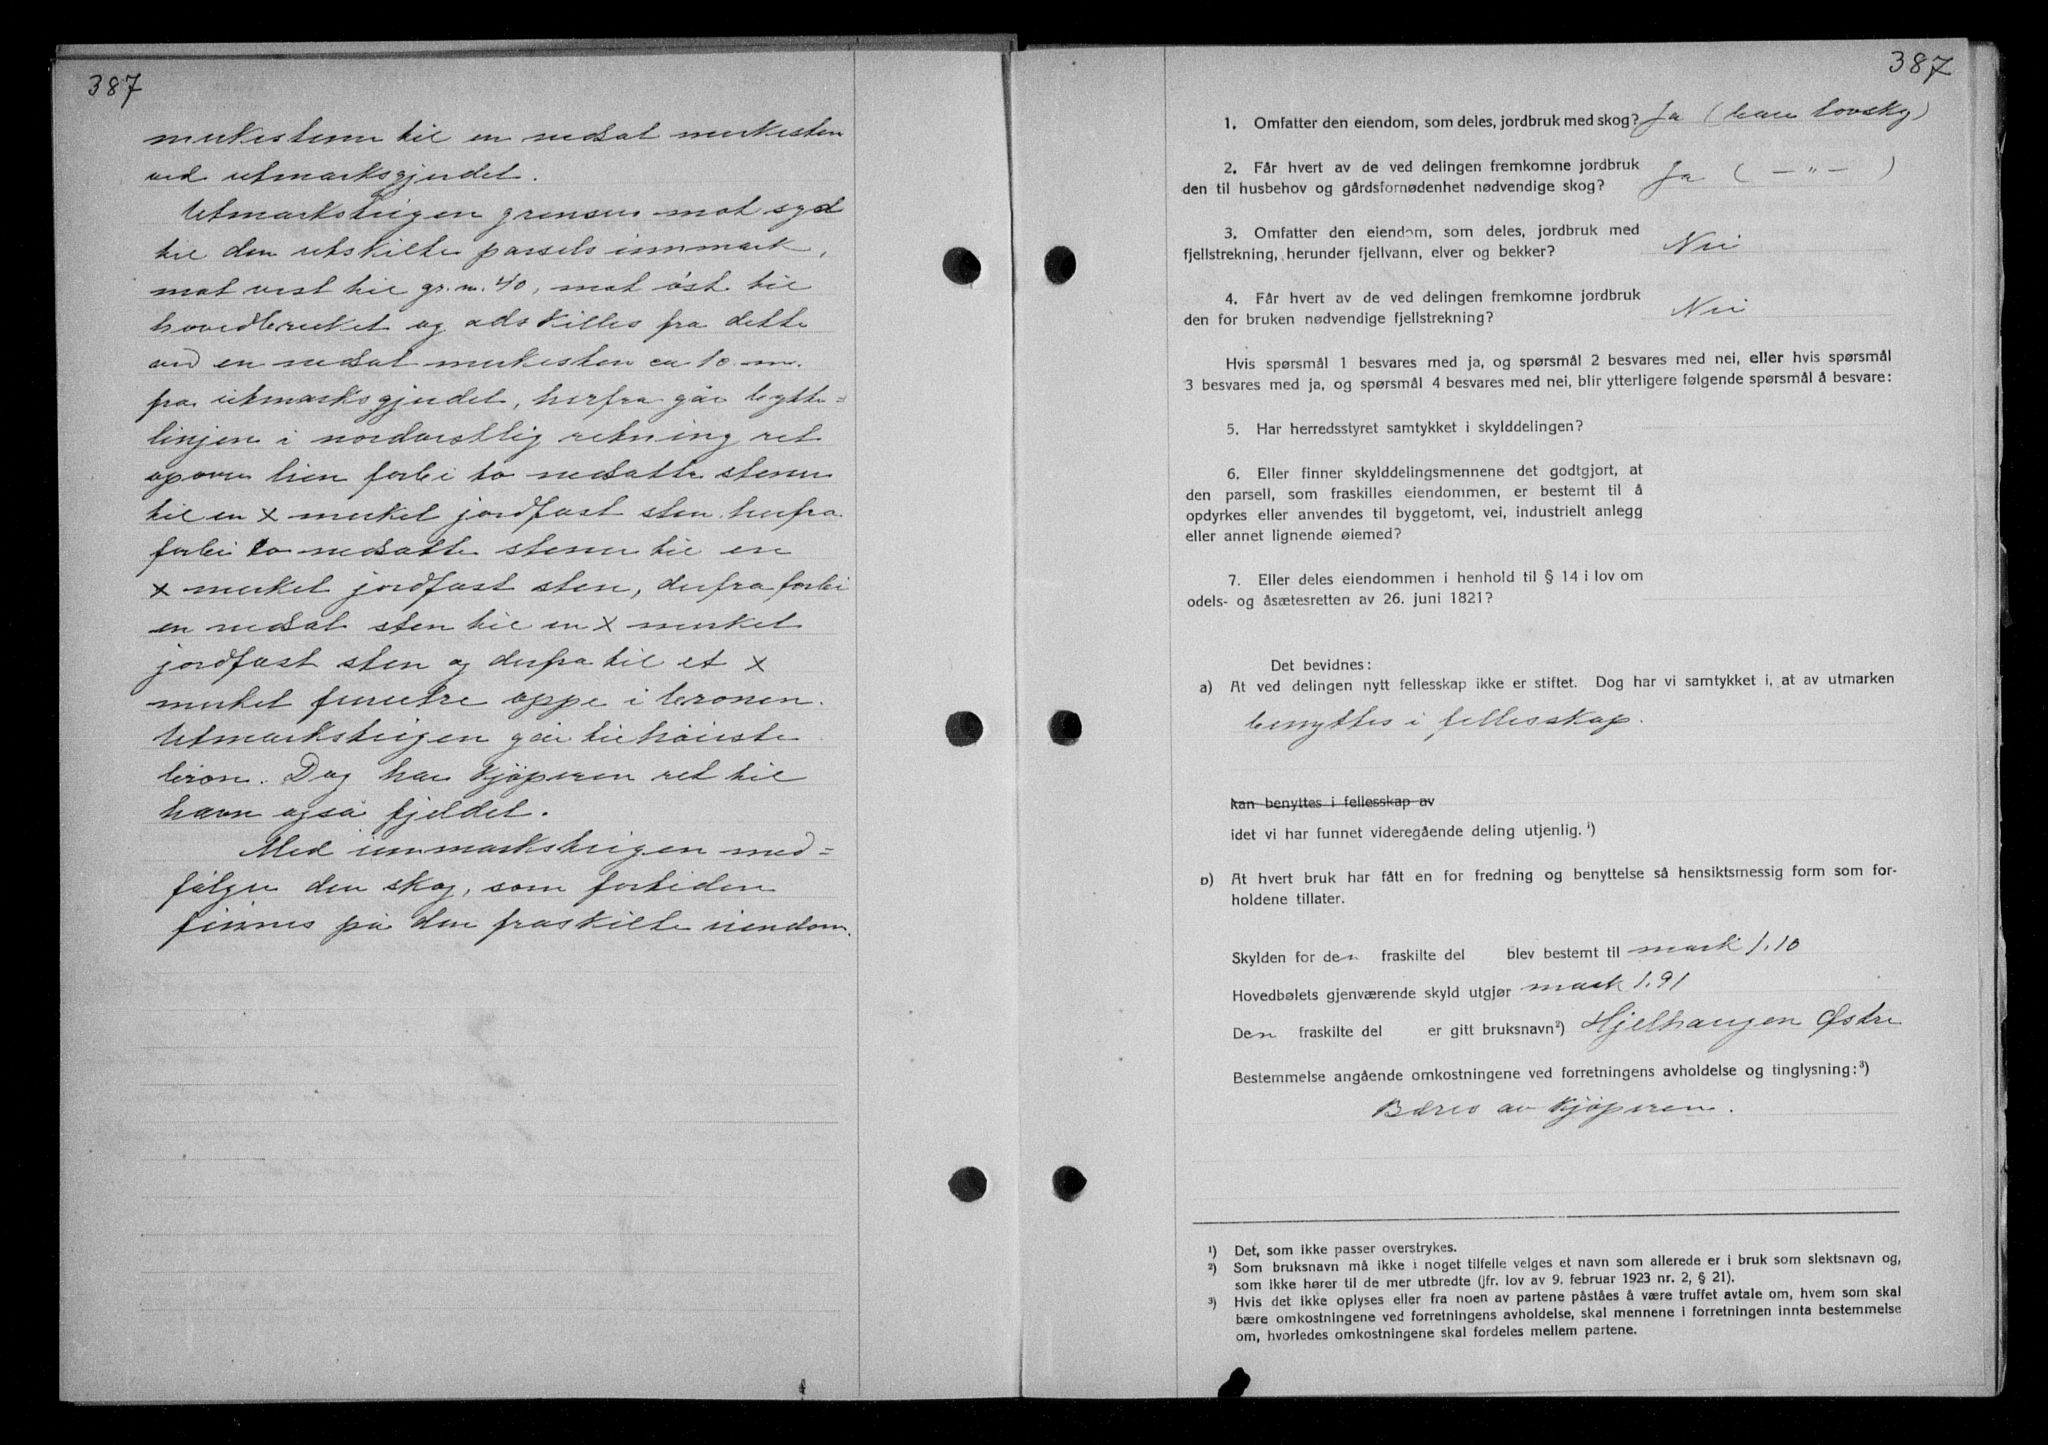 387
merkestener til en nedsat merkesten
ved utmarksgjerdet.
Utmarksteigen grenser mot syd
til den utskilte parsels innmark,
mot vest til gr. n. 40, mot øst til
hovedbruket og adskilles fra dette
ved en nedsat merkesten ca 10 m.
fra utmarksgjerdet, herfra går bytte=
linjen i nordvestlig retning ret
opover lien forbi to nedsatte stener
til en x merket jordfast sten herfra
forbi to nedsatte stener til en
x merket jordfast sten, derfra forbi
en nedsat sten til en x merket
jordfast sten og derfra til et x
merket furutre oppe i bronen.
Utmarksteigen går til høieste
bron. Dog har kjøperen ret til
havn også fjeldet.
Med innmarksteigen med=
følger den skog, som fortiden
finnes på den fraskilte eiendom.
387
1. Omfatter den eiendom, som deles, jordbruk med skog? Ja (bare lovskog)
2. Får hvert av de ved delingen fremkomne jordbruk
den til husbehov og gårdsfornødenhet nødvendige skog? Ja ( — „ — )
3. Omfatter den eiendom, som deles, jordbruk med
fjellstrekning, herunder fjellvann, elver og bekker? Nei
4. Får hvert av de ved delingen fremkomne jordbruk
den for bruken nødvendige fjellstrekning? Nei
Hvis spørsmål 1 besvares med ja, og spørsmål 2 besvares med nei, eller hvis spørsmål
3 besvares med ja, og spørsmål 4 besvares med nei, blir ytterligere følgende spørsmål å besvare:
5. Har herredsstyret samtykket i skylddelingen?
6. Eller finner skylddelingsmennene det godtgjort, at
den parsell, som fraskilles eiendommen, er bestemt til å
opdyrkes eller anvendes til byggetomt, vei, industrielt anlegg
eller annet lignende øiemed?
7. Eller deles eiendommen i henhold til § 14 i lov om
odels- og åsætesretten av 26. juni 1821?
Det bevidnes:
a) At ved delingen nytt fellesskap ikke er stiftet. Dog har vi samtykket i, at av utmarken
benyttes i fellesskap.
kan benyttes i fellesskap av
idet vi har funnet videregående deling utjenlig. ¹)
b) At hvert bruk har fått en for fredning og benyttelse så hensiktsmessig form som for-
holdene tillater.
Skylden for den fraskilte del blev bestemt til mark 1.10
Hovedbølets gjenværende skyld utgjør mark 1.91
Den fraskilte del er gitt bruksnavn²) Hjelhaugen Østre
Bestemmelse angående omkostningene ved forretningens avholdelse og tinglysning:³)
Bæres av kjøperen.
¹) Det, som ikke passer overstrykes.
²) Som bruksnavn må ikke i noget tilfelle velges et navn som allerede er i bruk som slektsnavn og,
som ikke hører til de mer utbredte (jfr. lov av 9. februar 1923 nr. 2, § 21).
³) Hvis det ikke oplyses eller fra noen av partene påståes å være truffet avtale om, hvem som skal
bære omkostningene ved forretningens avholdelse, skal mennene i forretningen innta bestemmelse
om, hvorledes omkostningene skal fordeles mellem partene.